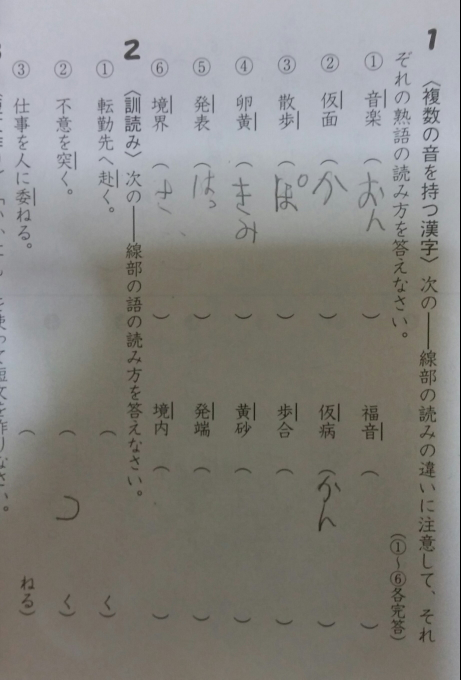 1 〈複数の音を持つ漢字〉 次の――線部の読みの違いに注意して、それ
ぞれの熟語の読み方を答えなさい。
(①〜⑥各完答)
① 音楽 (おん ) 福音 ( )
② 仮面 (か ) 仮病 (かん )
③ 散歩 (ぽ ) 歩合 ( )
④ 卵黄 (きみ ) 黄砂 ( )
⑤ 発表 (はっ ) 発端 ( )
⑥ 境界 ( ) 境内 ( )
2 〈訓読み〉 次の――線部の語の読み方を答えなさい。
① 転勤先へ赴く。 ( く)
② 不意を突く。 (つ く)
③ 仕事を人に委ねる。 ( ねる)